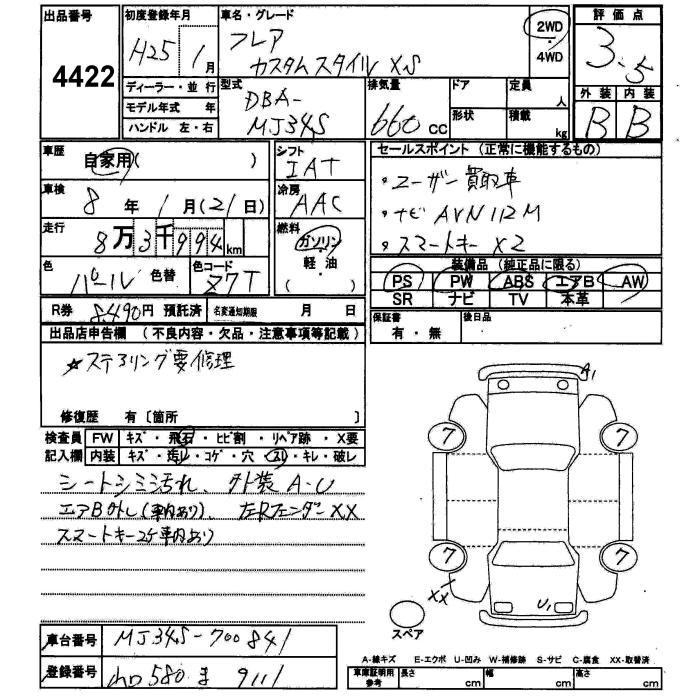 出品番号
4422
初度登録年月
H25 1月
ディーラー・並行
モデル年式 年
ハンドル 左・右
車名・グレード
フレア
カスタムスタイル XS
2WD
4WD
評価点
3.5
外装 内装
B B
型式
DBA-
MJ34S
排気量
660 cc
ドア
形状
定員 人
積載 kg
車歴
自家用( )
シフト
IAT
セールスポイント (正常に機能するもの)
・ユーザー買取車
・ナビ AVN112M
・スマートキー X2
車検
8年 1月(21日)
冷房
AAC
走行
8万3千994km
燃料
ガソリン
軽油
( )
色
パール
色替
色コード
Z7T
装備品 (純正品に限る)
PS PW ABS エアB AW
SR ナビ TV 本革
R券 8,490円 預託済
名変通知期限 月 日
保証書
有・無
後日品
出品店申告欄 (不良内容・欠品・注意事項等記載)
☆ステアリング要修理
修復歴 有〔箇所 〕
検査員
記入欄
FW キズ・飛石・ヒビ割・リペア跡・X要
内装 キズ・汚レ・コゲ・穴・スレ・キレ・破レ
シートシミ汚れ、外装A・U
エアB外し(車内あり)、左Rフェンダー XX
スマートキー2ケ車内あり
A1
7
7
7
7
XX
U1
スペア
車台番号
MJ34S-700841
登録番号
580 ま 9111
A-線キズ E-エクボ U-凹み W-補修跡 S-サビ C-腐食 XX-取替済
車庫証明用
参考
長さ cm
幅 cm
高さ cm